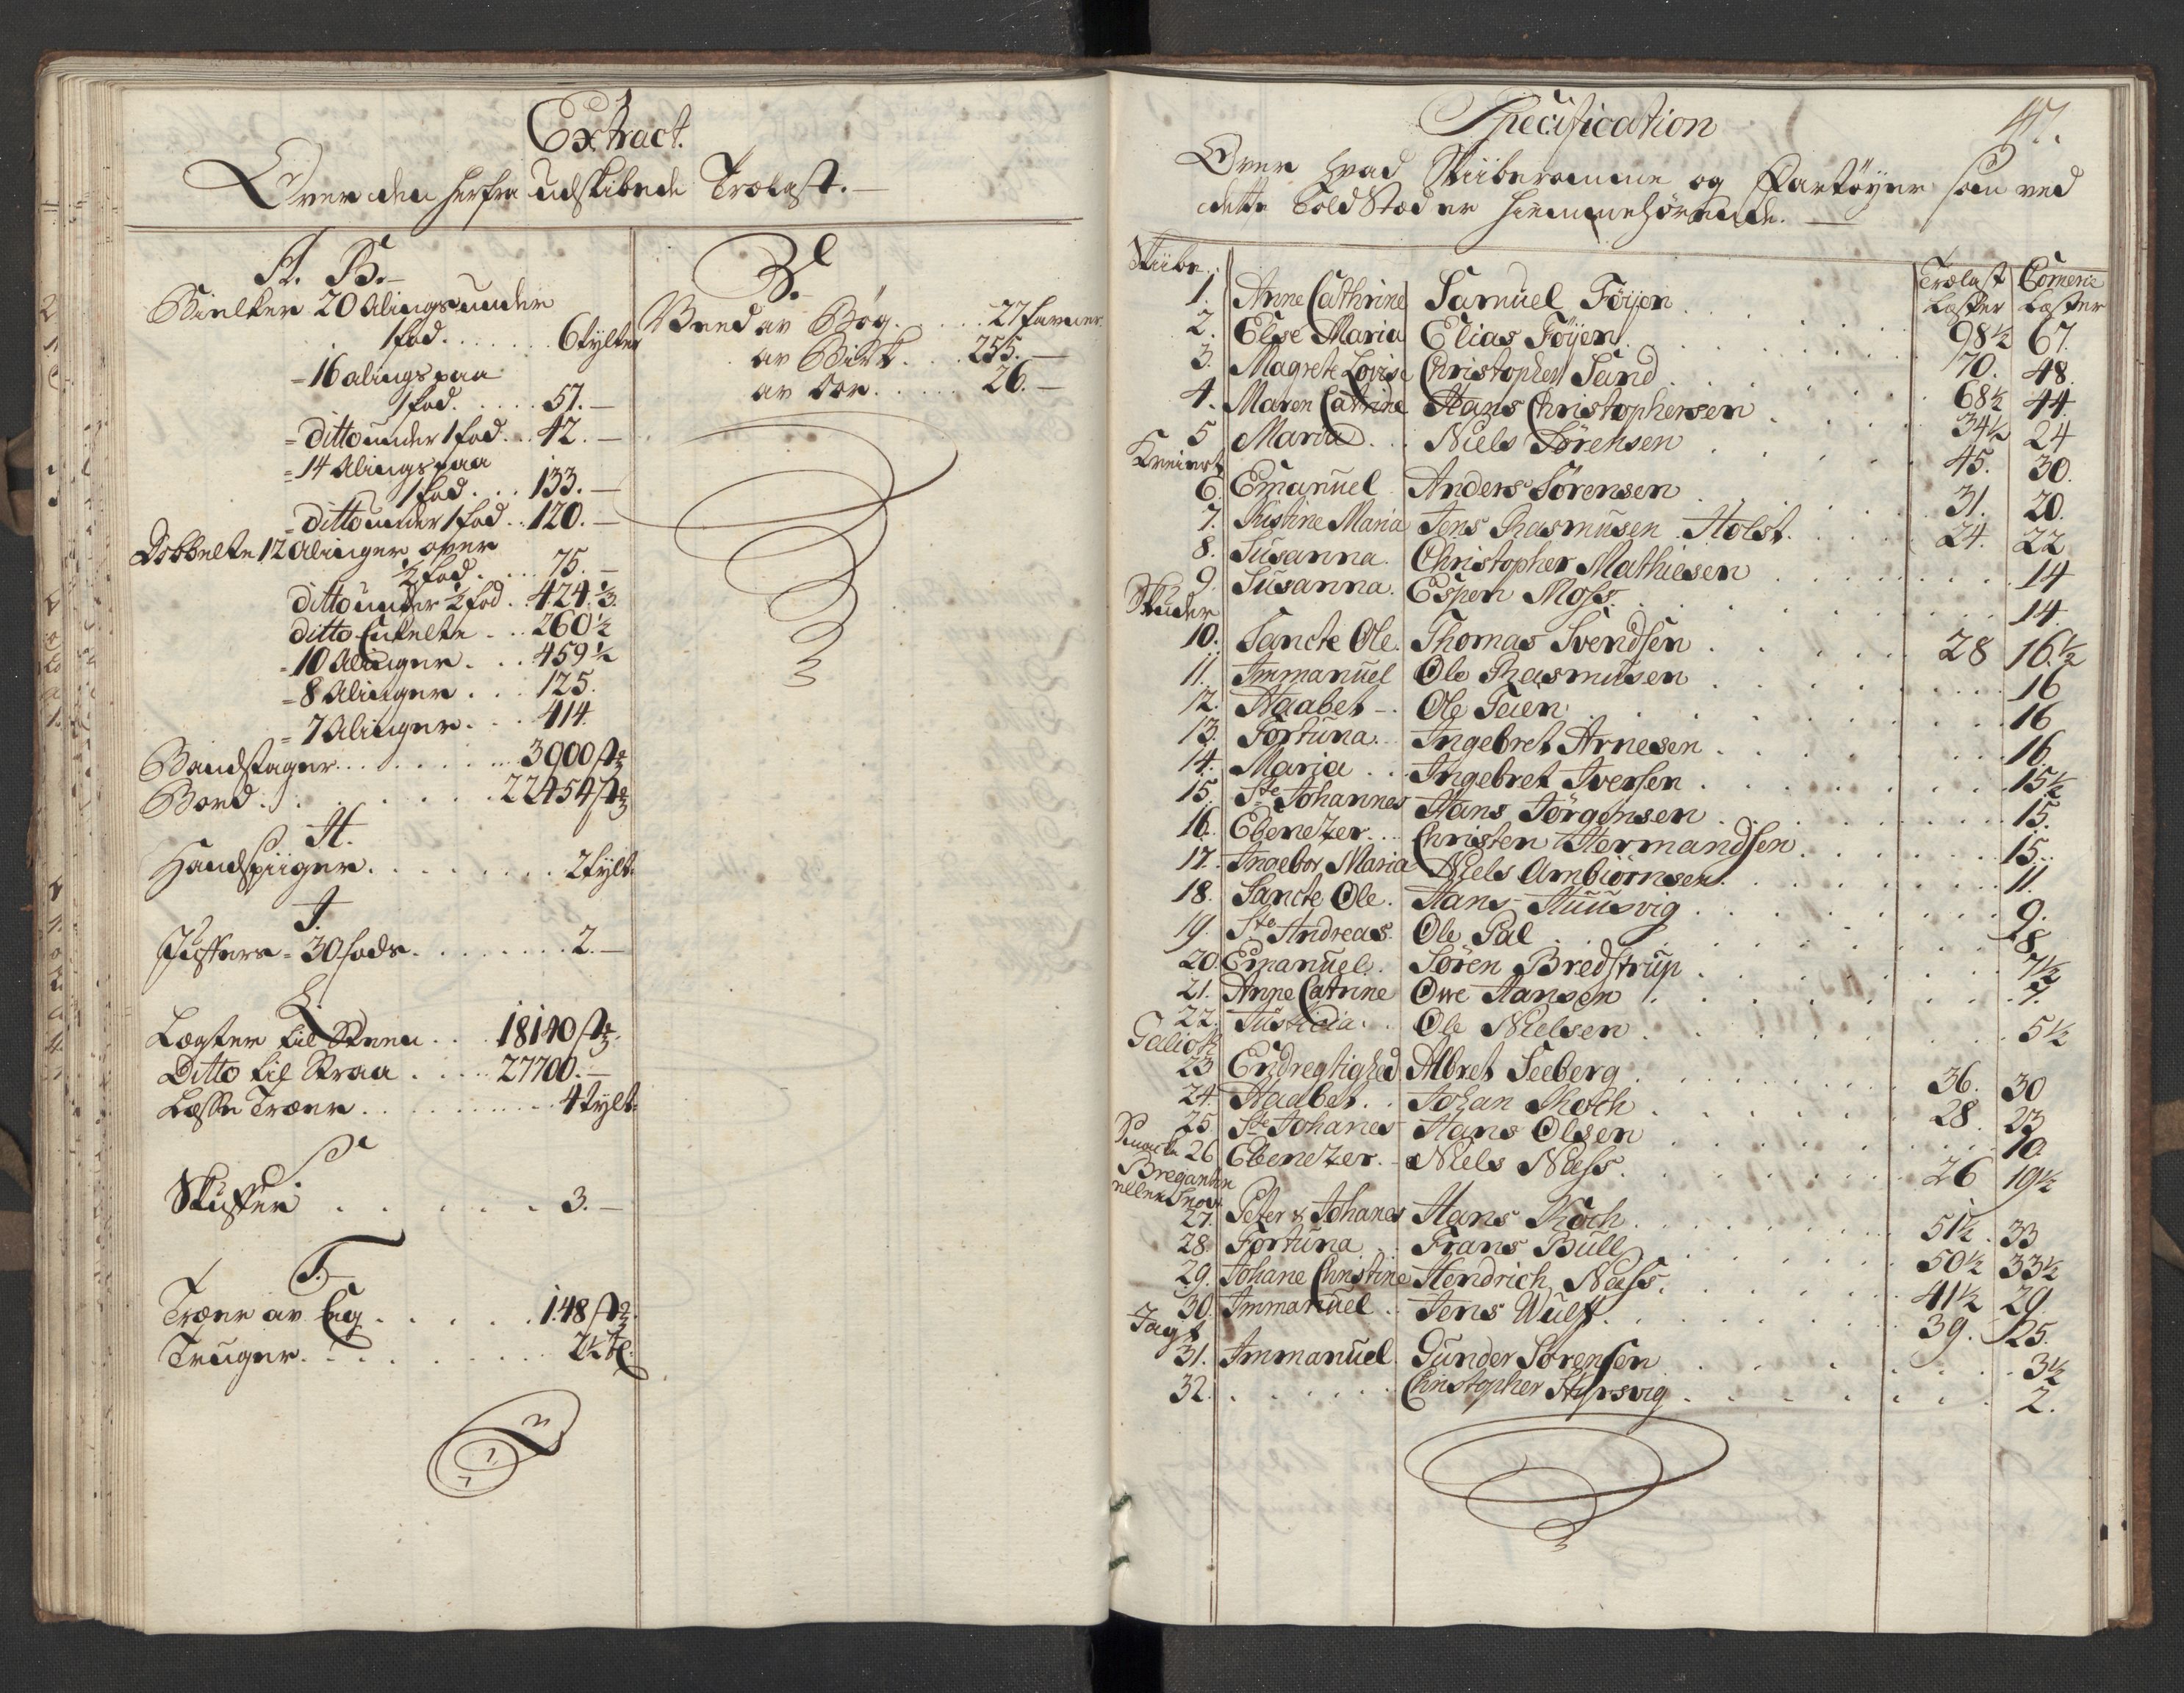 Extract.
Over den herfra udskibede Trælast.
A. B.
Bielker 20 Alings under
1 fod 6 tylter
= 16 alings paa
1 fod 51.
= ditto under 1 fod 42.
= 14 Alings paa
1 fod 133.
= ditto under 1 fod 120.
Dobbelte 12 Alinger over
½ fod 75.
ditto under ½ fod 424 ⅓.
ditto Enkelte 260 ½
= 10 Alinger 459 ½
= 8 Alinger 125.
= 7 Alinger 414.
Baandstager 3900
Bord 22454
H.
Handspiiger 2 tylt:
J.
Juffers = 30 fods 2.
L.
Lægter til Steen 18140
Ditto til Straa 27700.
Læsse Træer 4 tylt:
S.
Skuffer 3.
T.
Træer av Eeg 148
Truger
V.
Veed av Bøg 27 favner
av Birk 255.
av Oor 26.
Specification
47.
Over hvad Skiiberomme og Fartøyer som ved
dette Told Stæd er hiemmehørende.
Skibe.
Trælast Læster Comerce Læster
1. Anne Cathrine Samuel Föijen 98½ 67.
2. Else Maria Elias Föijen 70. 48.
3. Magrete Lovise Christopher Sand 68½ 44
4. Maren Catrine Hans Christophersen 34½ 24
5 Maria Niels Sörensen 45. 30.
Kreiert
6. Emanuel Anders Sörensen 31. 20.
7. Justine Maria Jens Rasmusen Holst. 24. 22
8. Susanna. Christopher Mathiesen 14
9 Susanna. Espen Moss. 14.
Skuder
10. Sancte Ole. Thomas Svendsen 28 16½
11. Immanuel Ole Rasmusen 16
12. Haabet Ole Teien 16
13. Fortuna. Ingebret Arnesen 16.
14. Maria Ingebret Iversen 15½
15. Ste Johannes Hans Jörgensen 15.
16. Ebenetzer Christen Hermandsen 15.
17. Ingebor Maria Niels Arnbiörnsen 11.
18. Sancte Ole. Hans Huusvig 9.
19. Ste Andreas. Ole Pal 8.
20. Emanuel. Sören Bredstrup 7½
21. Anne Catrine Owe Hansen 7.
22. Justicia Ole Nielsen 5½
Galioth
23 Endregtighed Albret Seeberg 36. 30
24. Haabet Johan Koch 28. 23
25 Ste Johanes Hans Olsen 10.
Smacke 26 Ebenetzer. Niels Næss. 26 19½
Bregantin
eller Snov
27. Peter & Johanes Hans Koch 51½ 33
28. Fortuna Frans Bull 50½ 33½
29. Johane Christine Hendrich Næss. 41½ 29.
30. Immanuel Jens Wulf. 39. 25.
Jagt
31. Immanuel. Gunder Sörensen 3½
32. Christopher Styrsvig 2.